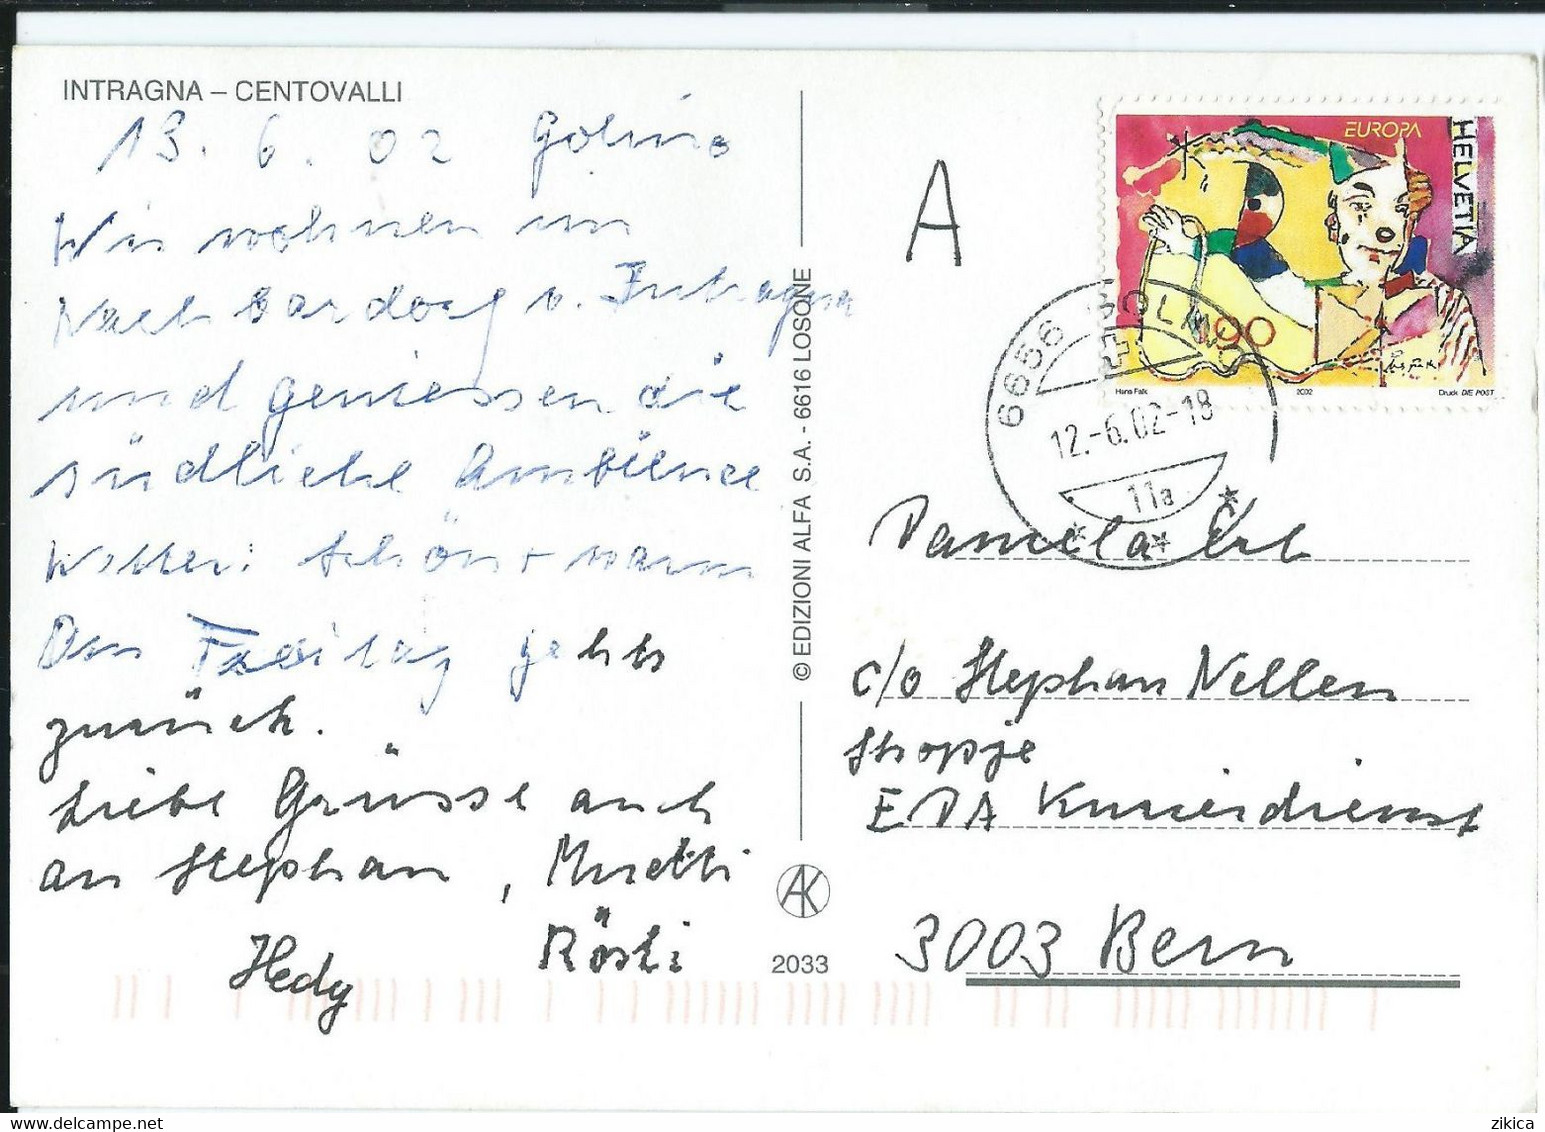 INTRAGNA – CENTOVALLI
13. 6. 02 Golino
Wir wohnen im
Nachbardorf v. Intragna
und geniessen die
südliche Ambience
Wetter: schön + warm
Am Freitag gehts
zurück.
Liebe Grüsse auch
an Stephan, Muetti
Rösti
Hedy
© EDIZIONI ALFA S.A. - 6616 LOSONE
AK
2033
A
EUROPA
HELVETIA
90
Hans Falk
2002
Druck DIE POST
6656 GOLINO
12.-6.02-18
11a
Pamela Erb
c/o Stephan Nellen
Skopje
EDA Kurierdienst
3003 Bern
zikica
www.delcampe.net